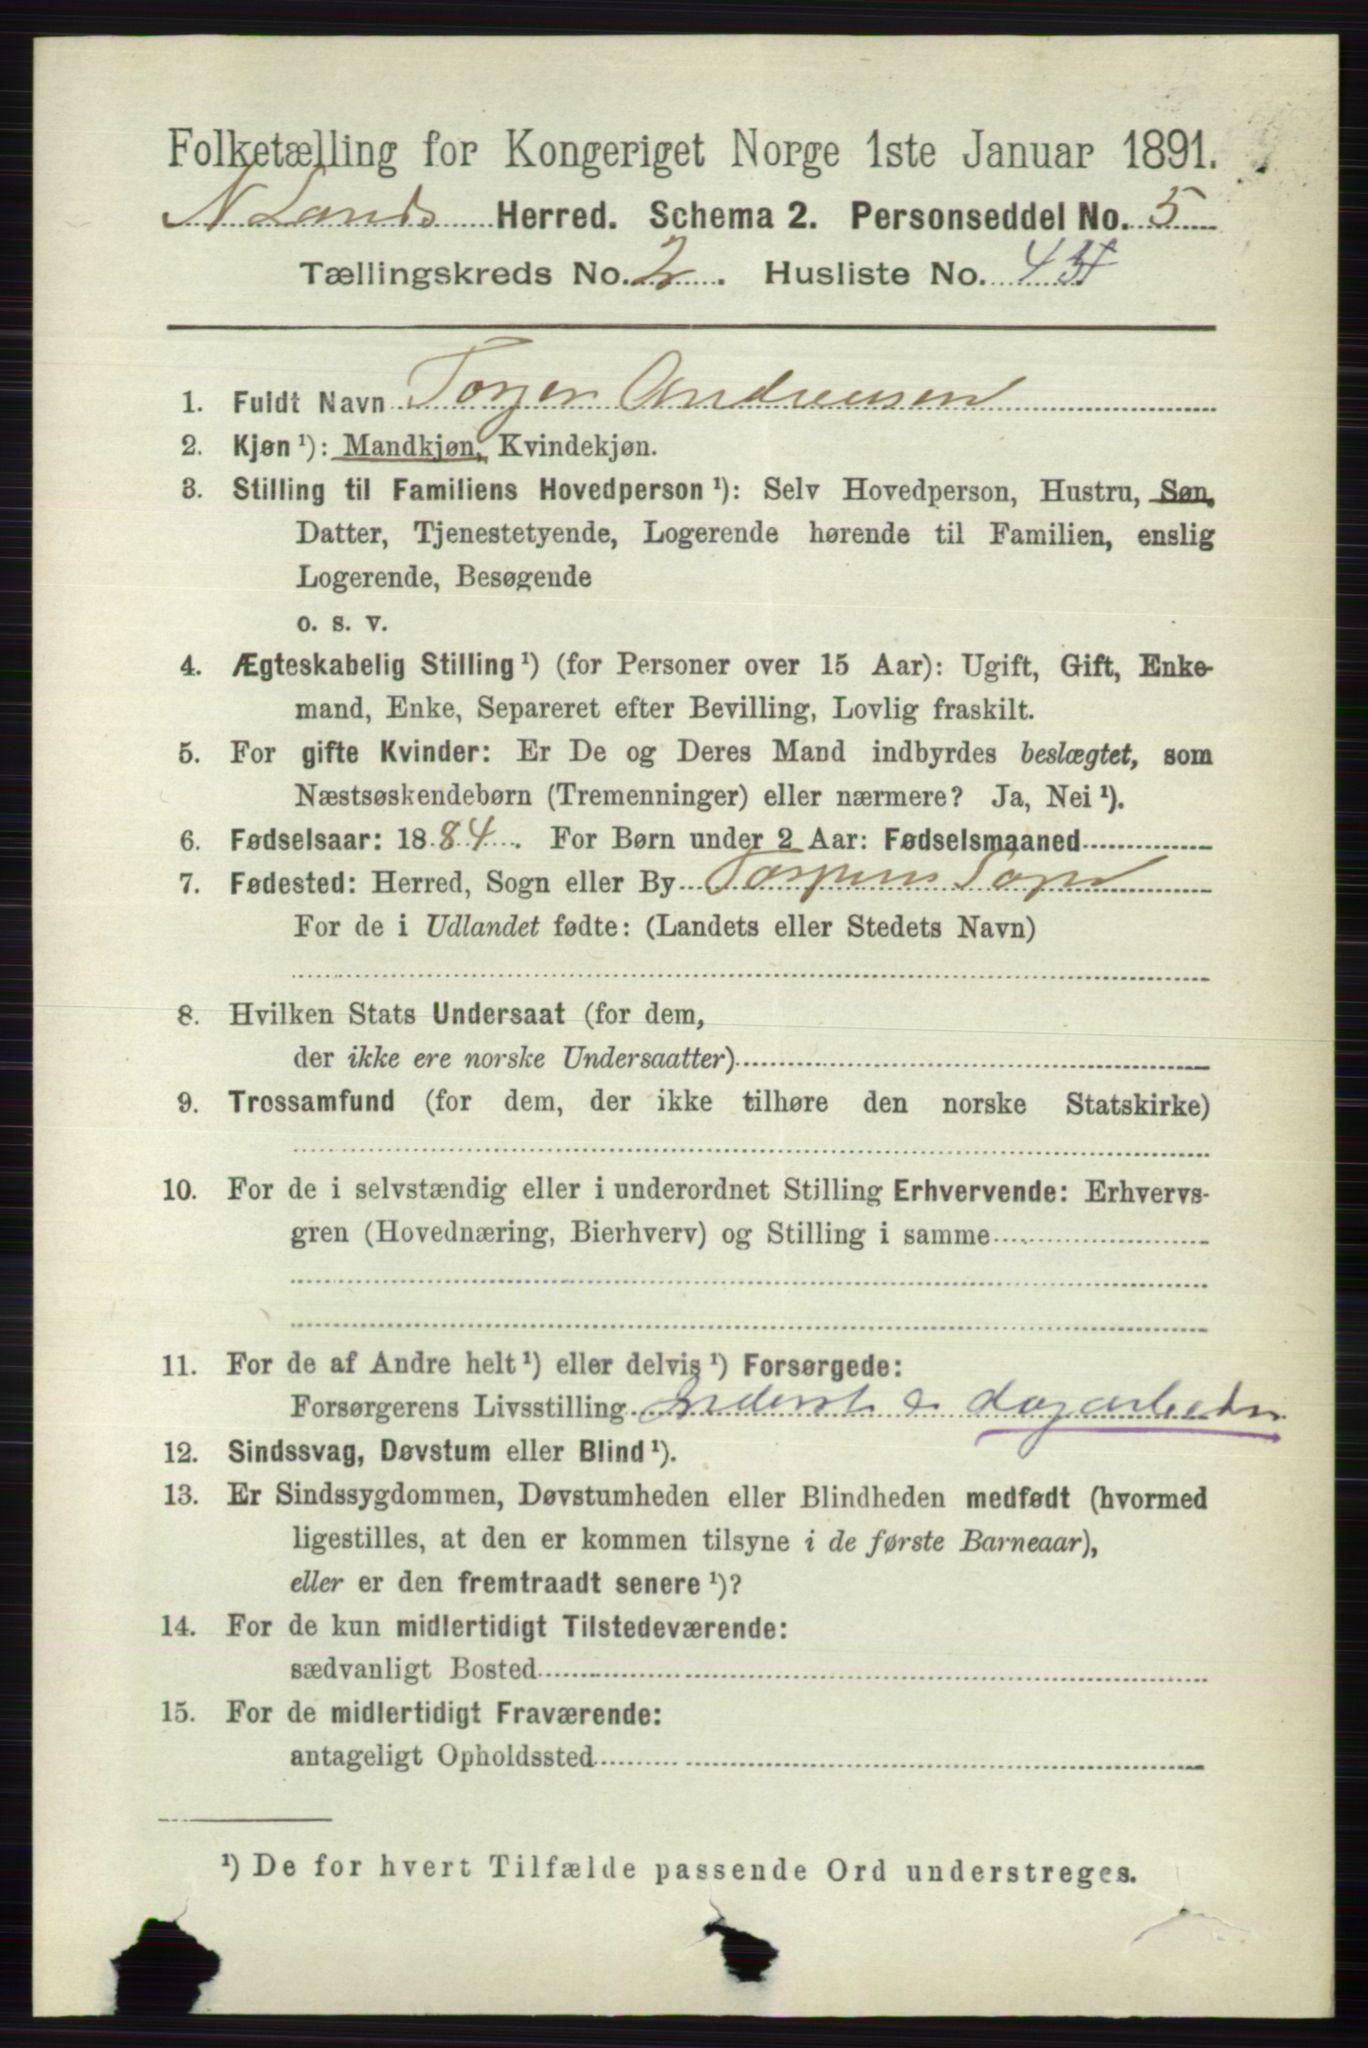 Folketælling for Kongeriget Norge 1ste Januar 1891.
N Lands Herred. Schema 2. Personseddel No. 5
Tællingskreds No. 2. Husliste No.
1. Fuldt Navn Torger Andreasen
2. Kjøn ¹): Mandkjøn, Kvindekjøn.
3. Stilling til Familiens Hovedperson ¹): Selv Hovedperson, Hustru, Søn,
Datter, Tjenestetyende, Logerende hørende til Familien, enslig
Logerende, Besøgende
o. s. v.
4. Ægteskabelig Stilling ¹) (for Personer over 15 Aar): Ugift, Gift, Enke-
mand, Enke, Separeret efter Bevilling, Lovlig fraskilt.
5. For gifte Kvinder: Er De og Deres Mand indbyrdes beslægtet, som
Næstsøskendebørn (Tremenninger) eller nærmere? Ja, Nei ¹).
6. Fødselsaar: 1884. For Børn under 2 Aar: Fødselsmaaned
7. Fødested: Herred, Sogn eller By Torpens Sogn
For de i Udlandet fødte: (Landets eller Stedets Navn)
8. Hvilken Stats Undersaat (for dem,
der ikke ere norske Undersaatter)
9. Trossamfund (for dem, der ikke tilhøre den norske Statskirke)
10. For de i selvstændig eller i underordnet Stilling Erhvervende: Erhvervs-
gren (Hovednæring, Bierhverv) og Stilling i samme
11. For de af Andre helt ¹) eller delvis ¹) Forsørgede:
Forsørgerens Livsstilling Inderst & dagarbeider
12. Sindssvag, Døvstum eller Blind ¹).
13. Er Sindssygdommen, Døvstumheden eller Blindheden medfødt (hvormed
ligestilles, at den er kommen tilsyne i de første Barneaar),
eller er den fremtraadt senere ¹)?
14. For de kun midlertidigt Tilstedeværende:
sædvanligt Bosted
15. For de midlertidigt Fraværende:
antageligt Opholdssted
¹) De for hvert Tilfælde passende Ord understreges.